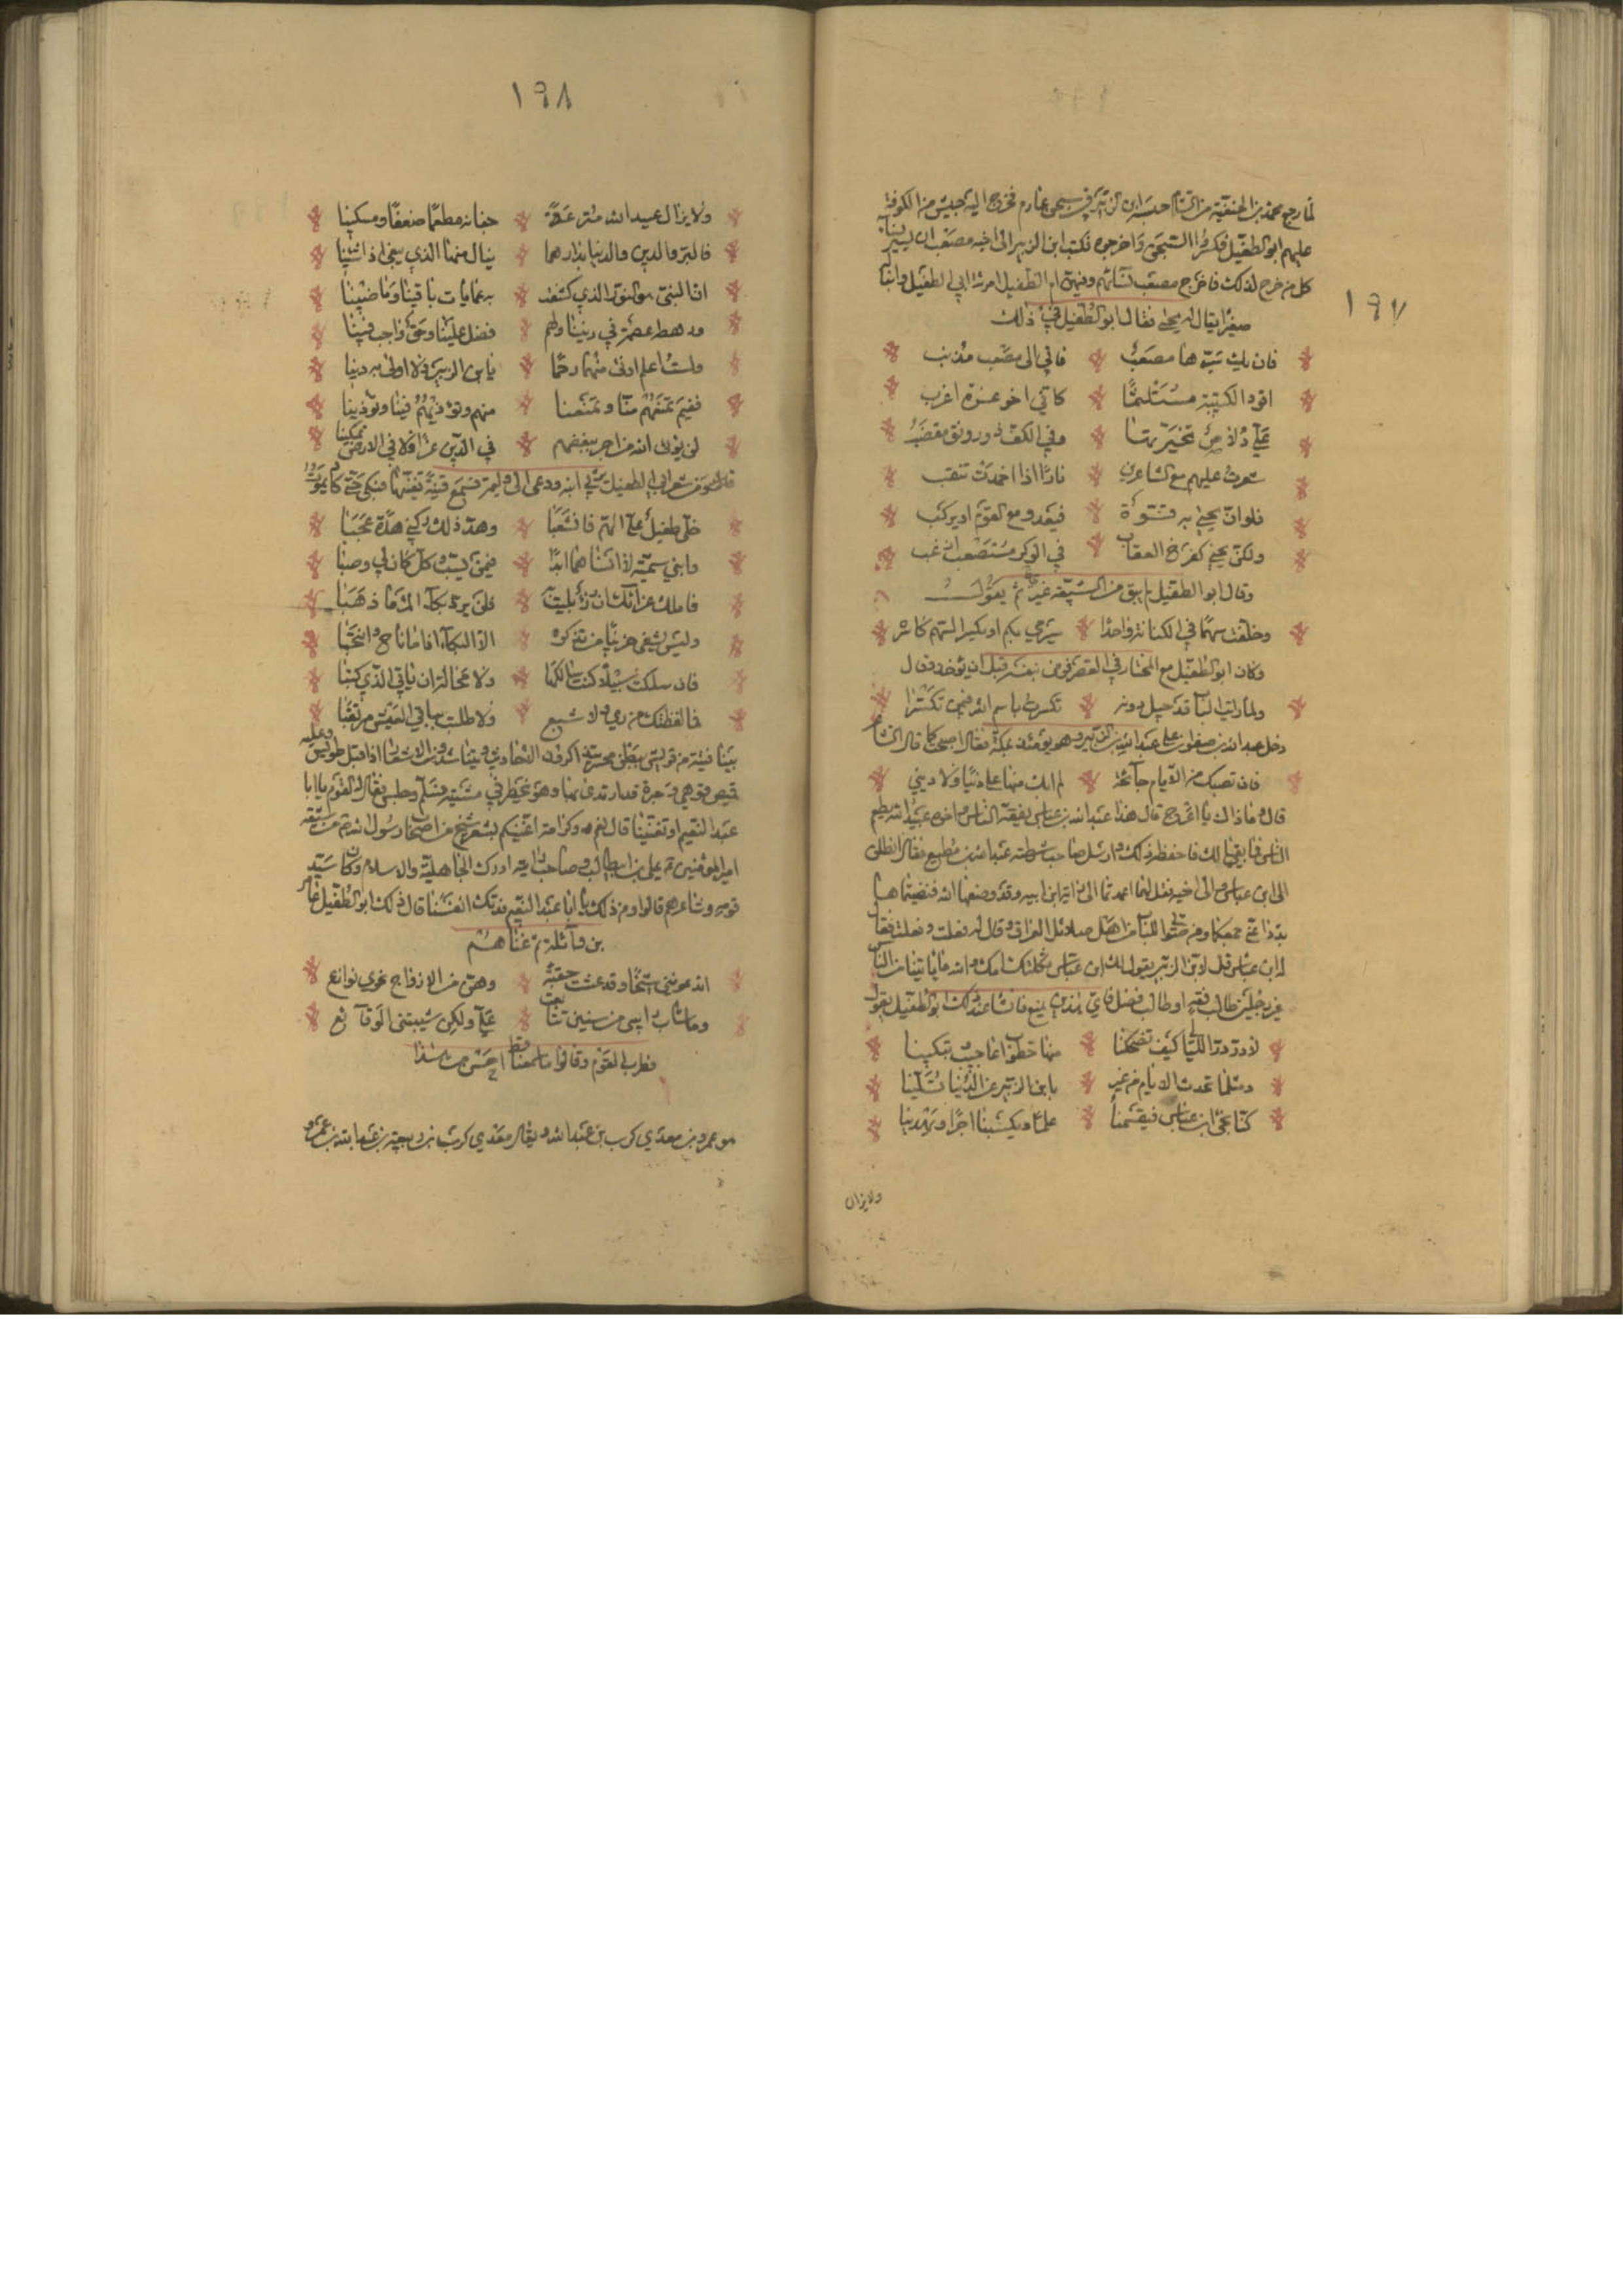 ١٩٧
لما رجع محمد بن الحنفية من الشام حبسه ابن الزبير في سجن عارم فخرج اليه جيش من الكوفة
عليهم ابو الطفيل فكسروا السجن واخرجوه فكتب ابن الزبير الى اخيه مصعب ان يسير نساء
كل من خرج لذلك فاخرج مصعب نسائهم وفيهن ام الطفيل امرءة ابي الطفيل وابنا
صغيرا يقال له يحيى فقال ابو الطفيل في ذلك
فان يك سيرها مصعب فاني الى مصعب مذنب
اقود الكتيبة مستلئما كاني اخو عزة اغرب
علي دلاص تخيرتها وفي الكف ذو رونق مقضب
سعرت عليهم مع الساعرين نارا اذا اخمدت تثقب
فلوان يحيى به قوة فيغدو مع القوم او يركب
ولكن يحيى كفرخ العقاب في الوكر مستضعف ازغب
وقال ابو الطفيل لم يبق من الشيعة غيري ثم يقول
وخلفت سهما في الكنانة واحدا سيرمي به او يكسر السهم كاسر
وكان ابو الطفيل مع المختار في القصر فرمى بنفسه قبل ان يؤخذ وقال
ولما رايت الباب قد حيل دونه تكسرت باسم الله فيمن تكسرا
دخل عبد الله بن صفوان على عبد الله بن الزبير وهو يومئذ بمكة فقال اصبحت كما قال الشاعر
فان تصبك من الايام جائحة لم ابك منها على دنيا ولا ديني
قال وما ذاك يا اعرج قال هذا عبد الله بن عباس يفقه الناس واخوه عبيد الله يطعم
الناس فما بقيا لك فاحفظه ذلك وارسل صاحب شرطته عبد الله بن مطيع فقال انطلق
الى ابن عباس فقل لهما اعمدتما الى راية ابي ترابية قد وضعها الله فنصبتماها
بددا عني جمعكما ومن ضوى اليكما من اهل العراق وقال له فعلت وفعلت فقال
له ابن عباس قل لابن الزبير يقول لك ابن عباس ثكلتك امك والله ما ياتينا من الناس
غير رجلين طالب فقه او طالب فضل فاي هذين نمنع فانشا عند ذلك ابو الطفيل يقول
لا در در الليالي كيف تضحكنا منها خطوب اعاجيب وتبكينا
ومثلما تحدث الايام من غير يا ابن الزبير عن الدنيا تسلينا
كنا نجئ ابن عباس فيقسمنا علما ويكسبنا اجرا ويهدينا
ولا يزال
١٩٨
ولا يزال عبيد الله مترعة جفانه مطعما ضعفا ومسكينا
فالبر والدين والدنيا بدارهما ننال منها الذي نبغي اذا شئنا
ان النبي هو النور الذي كشفت به عمايات باقينا وماضينا
ورهطه عصمة في ديننا ولهم فضل علينا وحق واجب فينا
ولست اعلم ادنى منهم رحما يا ابن الزبير ولا اولى به دينا
ففيم تمنعهم منا وتمنعنا منهم وتؤذيهم فينا وتؤذينا
لن يؤتي الله من اجرى ببغضهم في الدين عزا ولا في الارض تمكينا
قال ومن شعر ابي الطفيل يرثي ابنه ودعى الى وليمة فسمع قينة تغنيها فبكى حتى كاد يموت
خلى طفيل على الهم فانشعبا وهد ذلك ركني هدة عجبا
وابني سمية لا انساهما ابدا فيمن نسيت وكل كان لي وصبا
فاملك عزاءك ان رزء بليت به فلن يرد بكاء المرء ما ذهبا
وليس يشفي حزينا من تذكره الا البكاء اذا ما ناح وانتحبا
فان سلكت سبيلا كنت سالكها ولا محالة ان ياتي الذي كتبا
فما لفظتك من ري ولا شبع ولا ظللت بباقي العيش مرتغبا
بينا فتية من قريش ببطن محسر يتذاكرون الاحاديث ويتناشدون الاشعار اذ اقبل طويس وعليه
قميص قوهي وحبرة قد ارتدى بها وهو يخطر في مشيته فسلم وجلس فقال له القوم يا ابا
عبد النعيم لو تغنيتنا قال نعم وكرامة اغنيكم بشعر شيخ من اصحاب رسول الله من شيعة
امير المؤمنين علي بن ابي طالب وصاحب رايته ادرك الجاهلية والاسلام وكان سيد
قومه وشاعرهم قالوا ومن ذلك يا ابا عبد النعيم فدتك انفسنا قال ذلك ابو الطفيل عامر
بن واثلة ثم غناهم
اتدعونني شيخا وقد عشت حقبة وهن من الازواج نحوي نوازع
وما شاب راسي من سنين تتابعت علي ولكن شيبتني الوقائع
فطرب القوم وقالوا ما سمعنا قط احسن من هذا
هو عمرو بن معدي كرب بن عبد الله ويقال معدي كرب بن ربيعة بن عبد الله بن عمرو